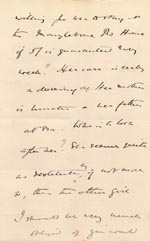 willing for her to stay at
the Marylebone Home
if 5/ is guaranteed every
week? Her case is really
a deserving one. Her mother
is a lunatic & her father
at sea. Who is to look
after her? She seems quite
as destitute, if not more
so, than the other girl.
I should be very much
obliged if you would